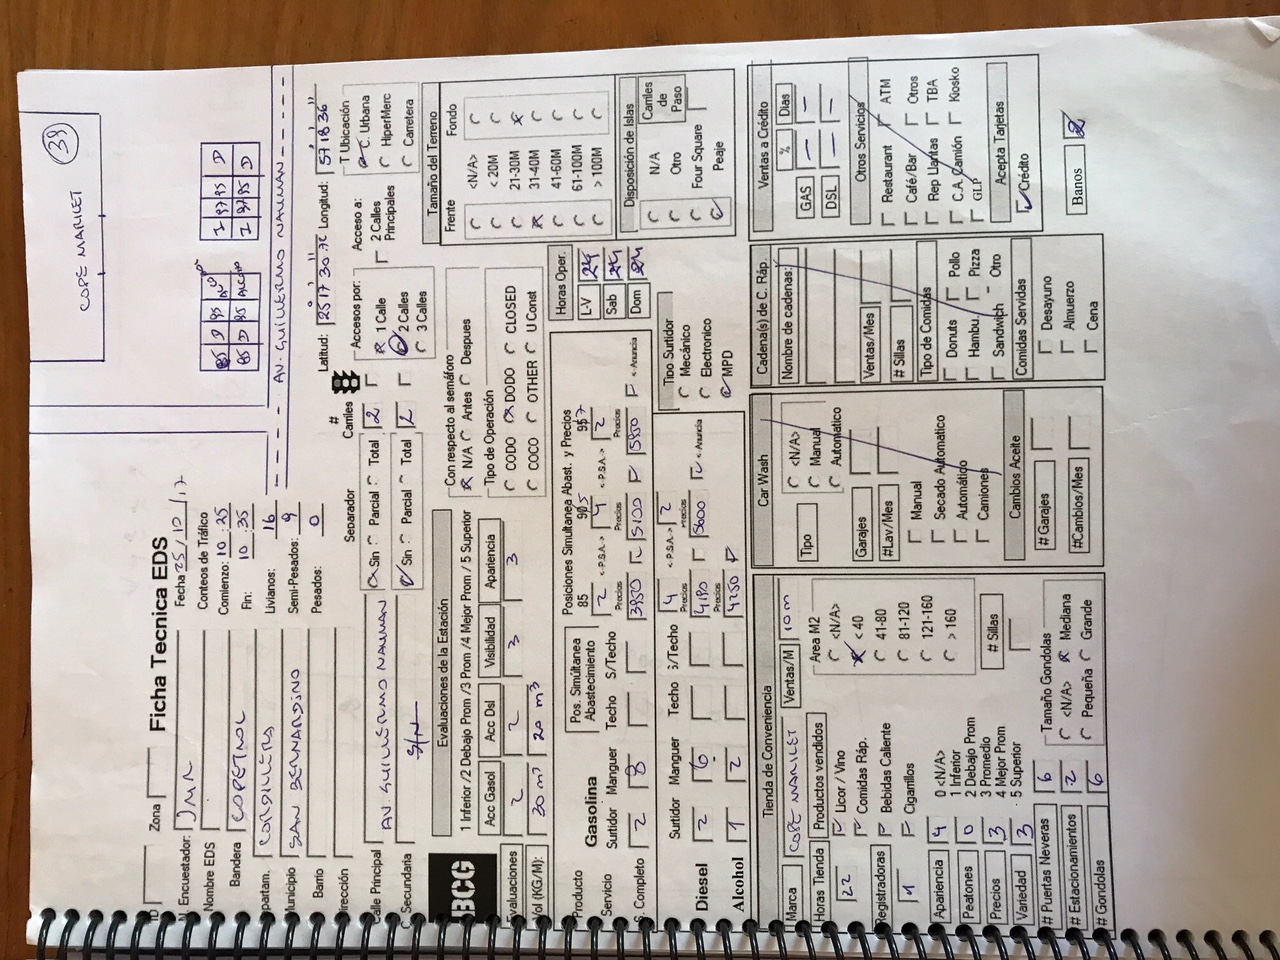 COPE MARKET
39
85 D 95
95 97 D
85 D 95
95 97 D
AV. GUILLERMO NAUMAN
Ficha Tecnica EDS
Zona
N. Encuestador: JMR
Fecha 25/10/17
Nombre EDS
Conteos de Tráfico
Bandera COPETROL
Comienzo: 10:25
Fin: 10:35
CORDILLERA
Livianos: 16
Municipio SAN BERNARDINO
Semi-Pesados: 9
Barrio
Pesados: 0
Dirección
Latitud: 25 17 30.72 Longitud: 57 18 36
Calle Principal AV GUILLERMO NAUMAN
C Secundaria S/N
Separador
Sin Parcial Total
Sin Parcial Total
# Carriles
2
2
Accesos por:
1 Calle
2 Calles
3 Calles
Acceso a:
2 Calles Principales
T Ubicación
C. Urbana
HiperMerc
Carretera
BCG
Evaluaciones de la Estación
1 Inferior /2 Debajo Prom /3 Prom /4 Mejor Prom / 5 Superior
Acc Gasol Acc Dsl Visibilidad Apariencia
Evaluaciones 2 2 3 3
Vol (KG/M): 30 m³ 20 m³
Con respecto al semáforo
N/A Antes Despues
Tipo de Operación
CODO DODO CLOSED
COCO OTHER U Const
Tamaño del Terreno
Frente Fondo
<N/A>
< 20M
21-30M
31-40M
41-60M
61-100M
> 100M
Producto Gasolina
Pos. Simúltanea Abastecimiento
Posiciones Simultanea Abast. y Precios
85 95 97
Servicio Surtidor Manguer Techo S/Techo
2 <-P.S.A.-> 4 <-P.S.A.-> 2
Precios Precios Precios
S. Completo 2 8
3950 5100 5950 <-Anuncia
Horas Oper.
L-V 24
Sab 24
Dom 24
Disposición de Islas
N/A
Otro
Four Square
Peaje
Carriles de Paso
Surtidor Manguer Techo S/Techo
4 <-P.S.A.-> 2
Precios Precios
Diesel 2 6
4180 5600 <-Anuncia
Alcohol 1 2
4250
Tipo Surtidor
Mecánico
Electronico
MPD
Tienda de Conveniencia
Marca COPE MARKET
Ventas/M 10 m
Horas Tienda
22
Productos vendidos
Licor / Vino
Comidas Ráp.
Bebidas Caliente
Cigarrillos
Registradoras
1
Area M2
<N/A>
< 40
41-80
81-120
121-160
> 160
# Sillas
Apariencia 4
Peatones 0
Precios 3
Variedad 3
0 <N/A>
1 Inferior
2 Debajo Prom
3 Promedio
4 Mejor Prom
5 Superior
# Puertas Neveras 6
# Estacionamientos 2
# Gondolas 6
Tamaño Gondolas
<N/A> Mediana
Pequeña Grande
Car Wash
Tipo
<N/A>
Manual
Automatico
Garajes
#Lav/Mes
Manual
Secado Automatico
Automático
Camiones
Cambios Aceite
# Garajes
#Cambios/Mes
Cadena(s) de C. Ráp.
Nombre de cadenas:
Ventas/Mes
# Sillas
Tipo de Comidas
Donuts Pollo
Hambu. Pizza
Sandwich Otro
Comidas Servidas
Desayuno
Almuerzo
Cena
Ventas a Crédito
% Dias
GAS – –
DSL – –
Otros Servicios
Restaurant ATM
Café/Bar Otros
Rep Llantas TBA
C.A. Camión Kiosko
GLP
Acepta Tarjetas
Crédito
Banos 2